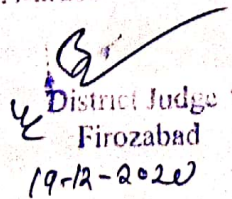 District Judge
Firozabad
19-12-2020